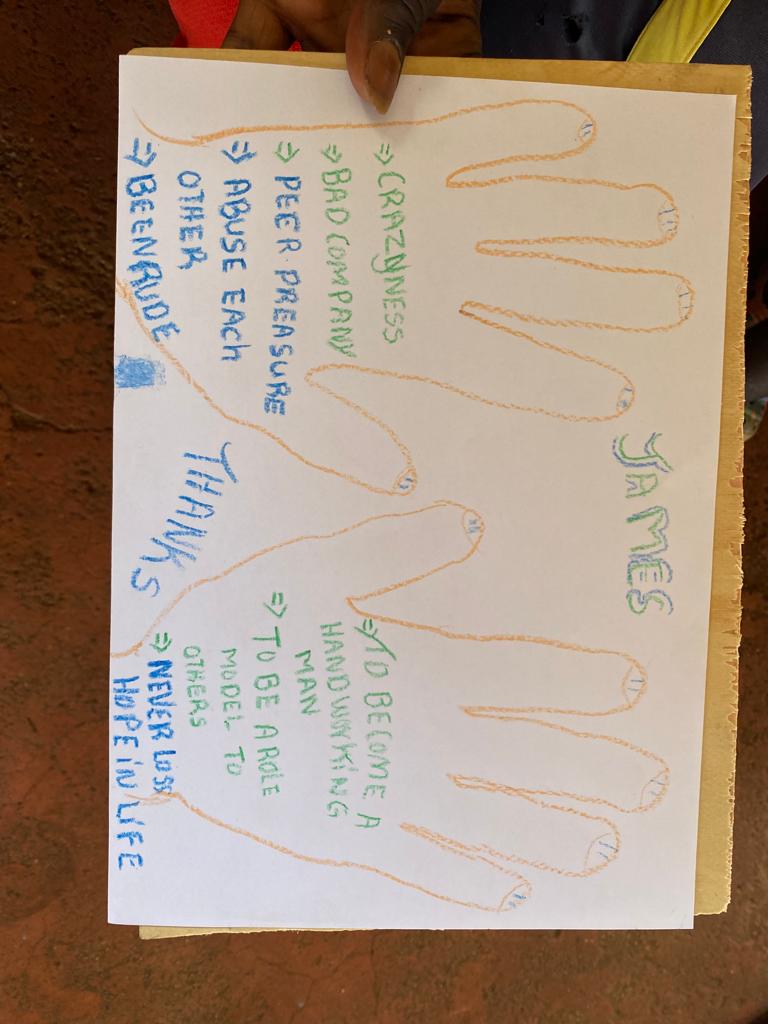 JAMES
=> CRAZYNESS
=> BAD COMPANY
=> PEER PREASURE
=> ABUSE EACH
OTHER
=> BEENRUDE
=> TO BECOME A
HANDWORKING
MAN
=> TO BE A ROLE
MODEL TO
OTHERS
=> NEVER LOSS
HOPE IN LIFE
THANKS